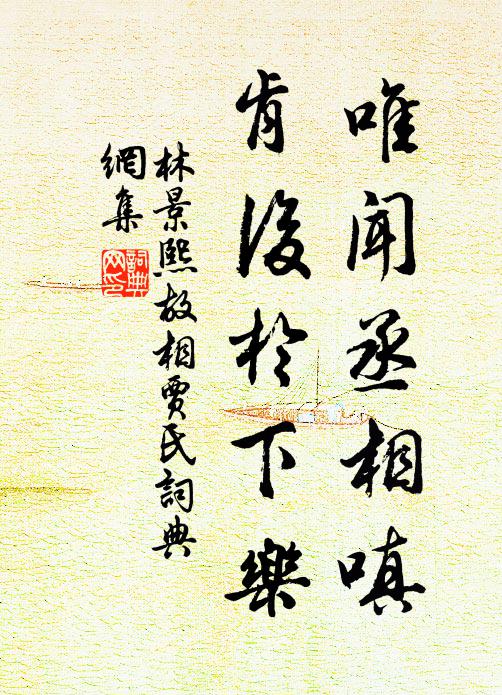 唯聞丞相嗔
肯後於下樂
林景熙故相賈氏詞典
網集
詞典
网印